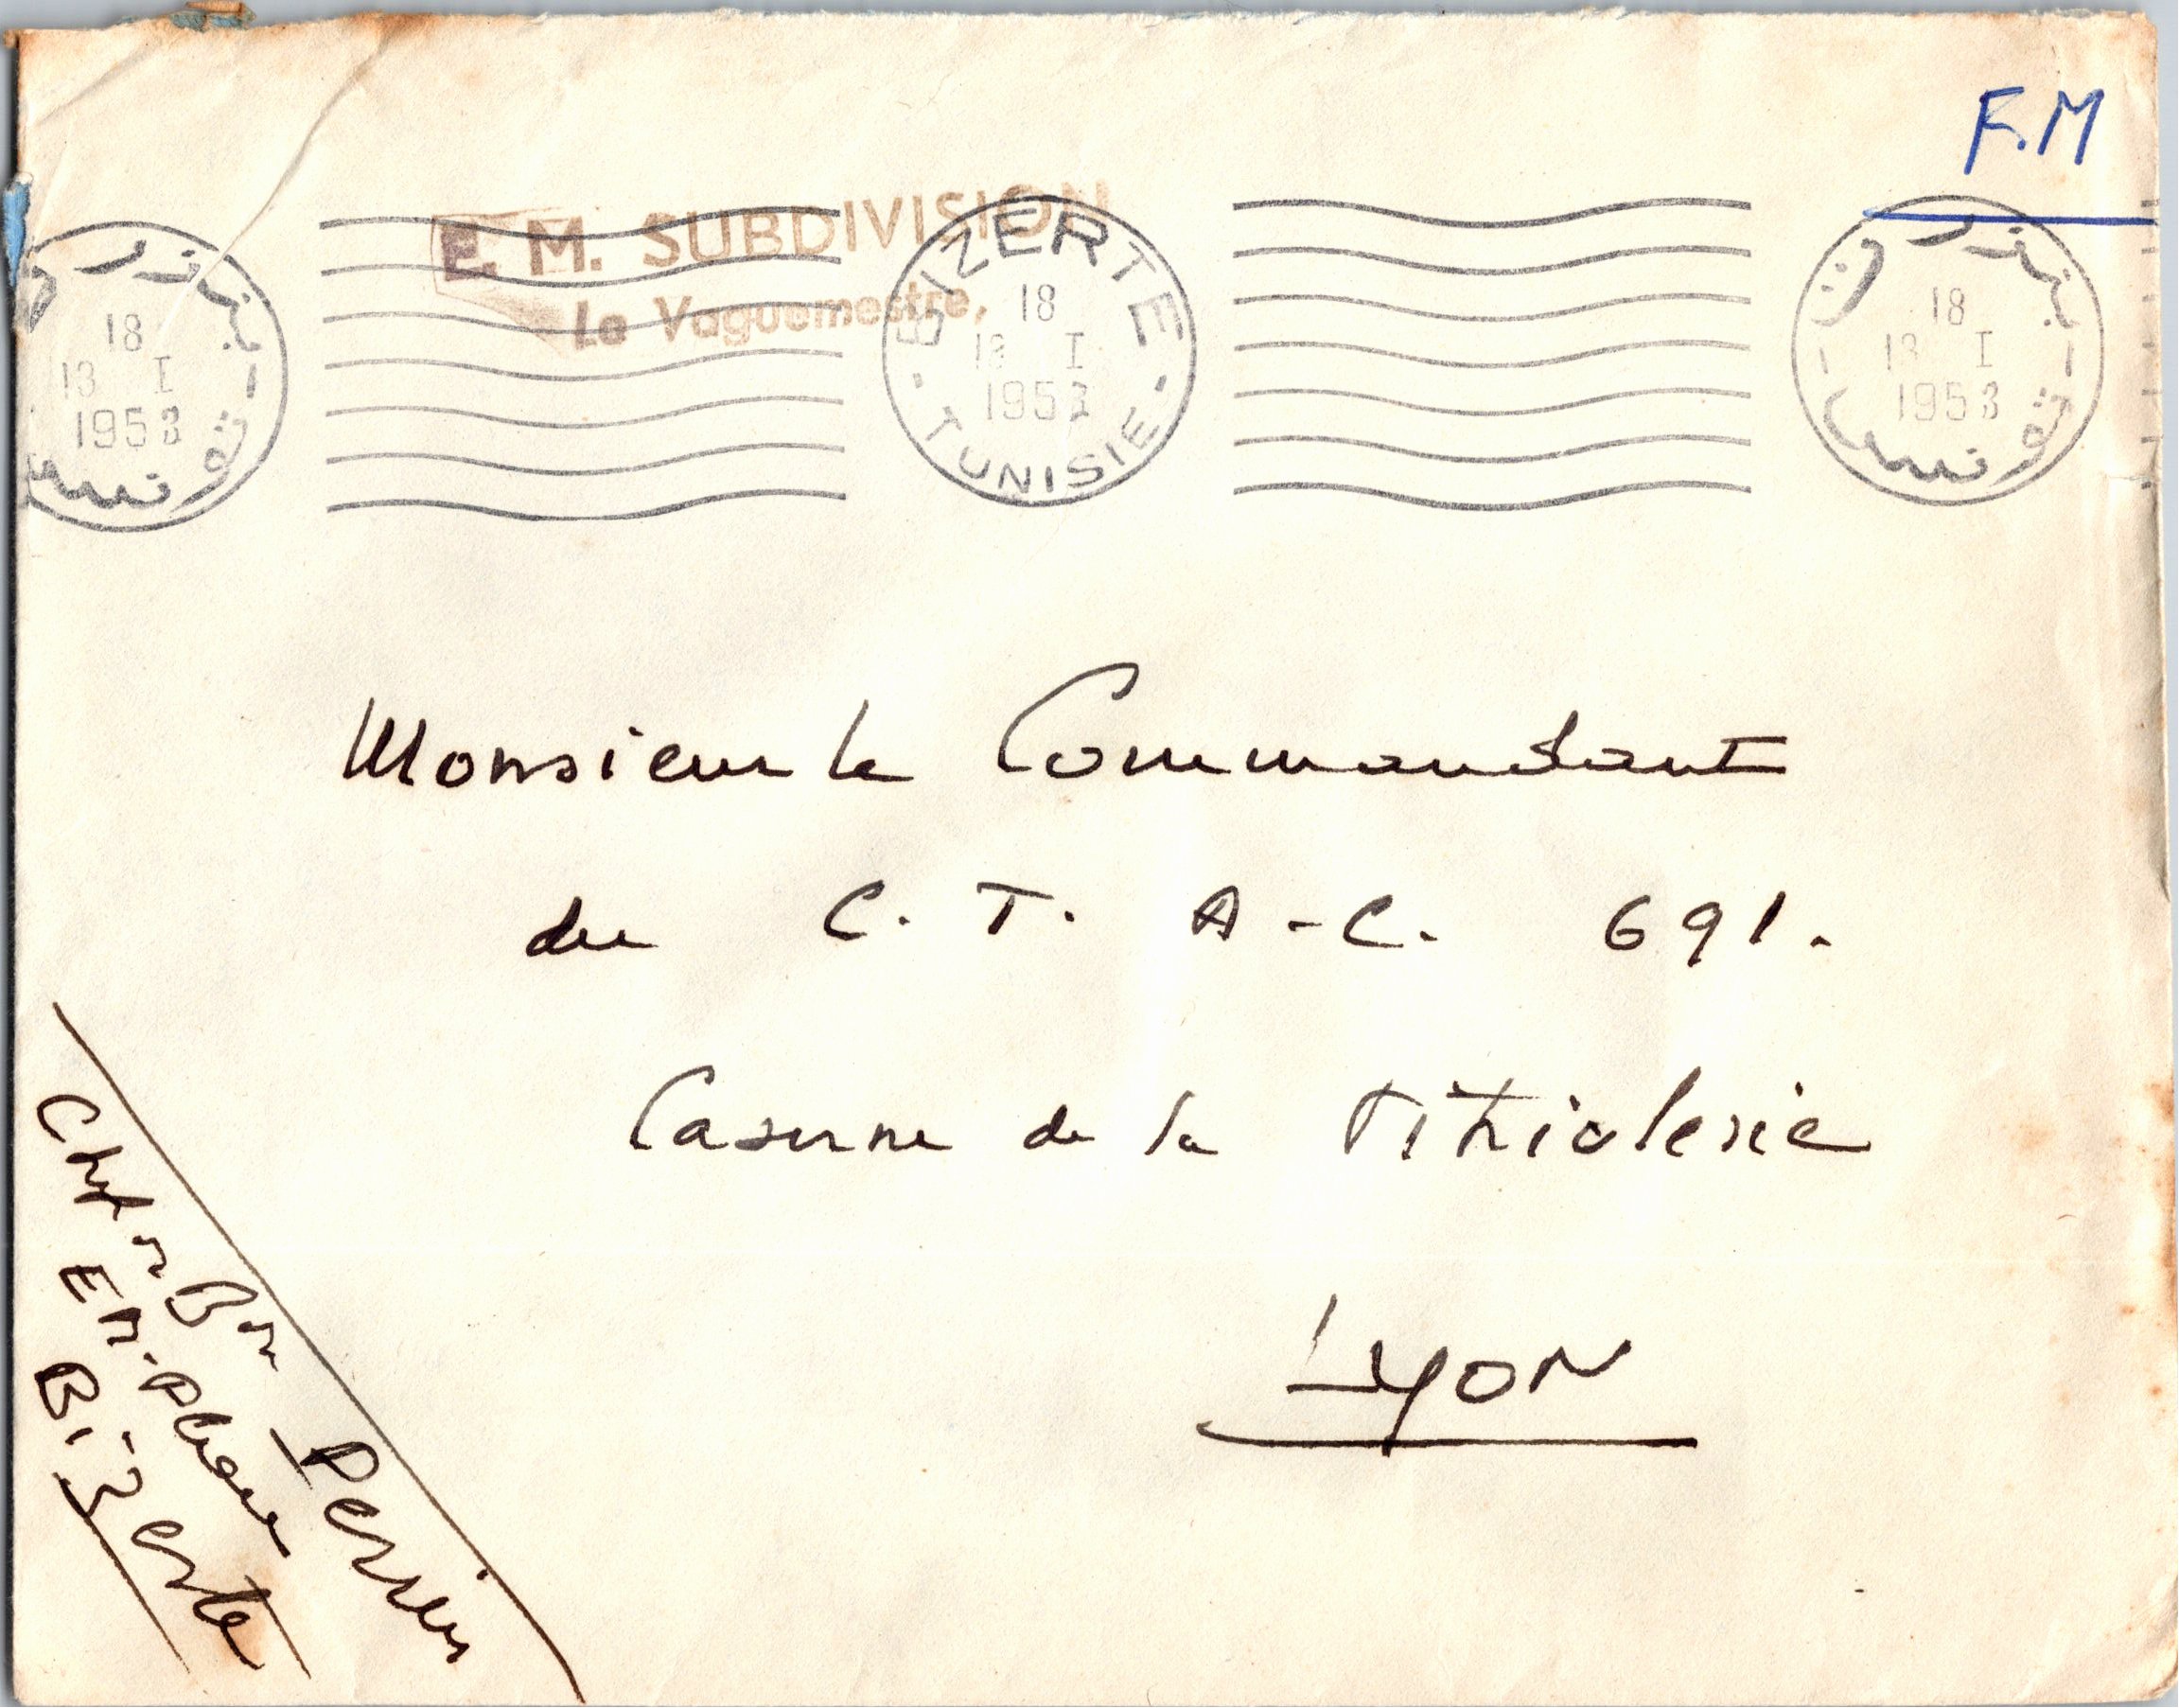 F.M
E. M. SUBDIVISION
Le Vaguemestre,
بنزرت
18
13 I
1953
تونس
BIZERTE
18
13 I
1953
TUNISIE
بنزرت
18
13 I
1953
تونس
Monsieur le Commandant
du C. T. A-C. 691.
Caserne de la Vitriolerie
Lyon
Chef Bon Perrin
EM. Place
Bizerte